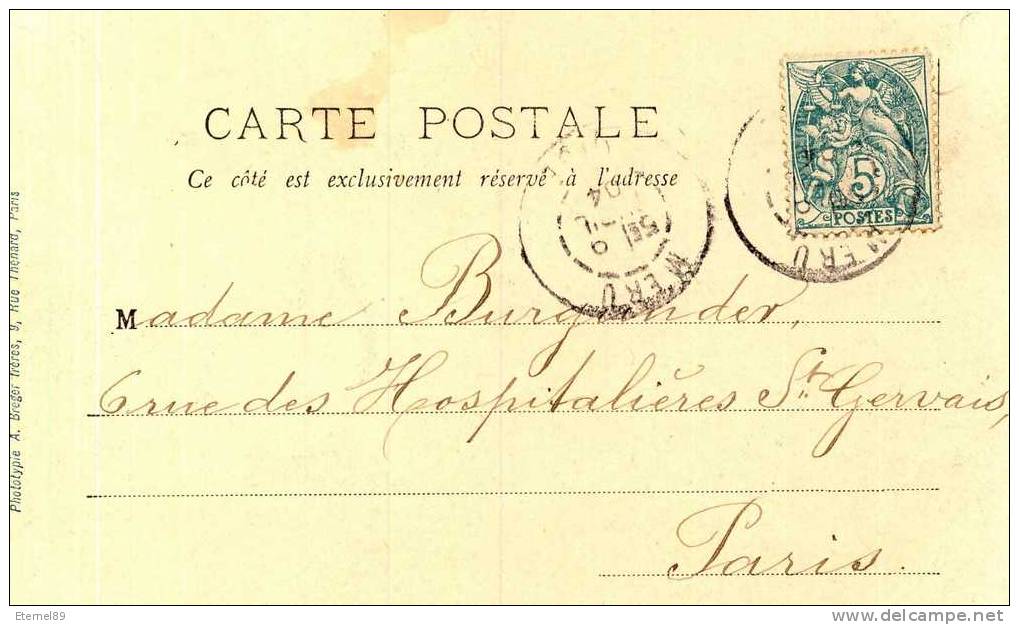 CARTE POSTALE
Ce côté est exclusivement réservé à l'adresse
5
POSTES
MERU
OISE
04
MERU
Madame Burgunder,
6 rue des Hospitalières St. Gervais,
Paris.
Phototypie A. Breger frères, 9, Rue Thénard, Paris
Eternel89
www.delcampe.net